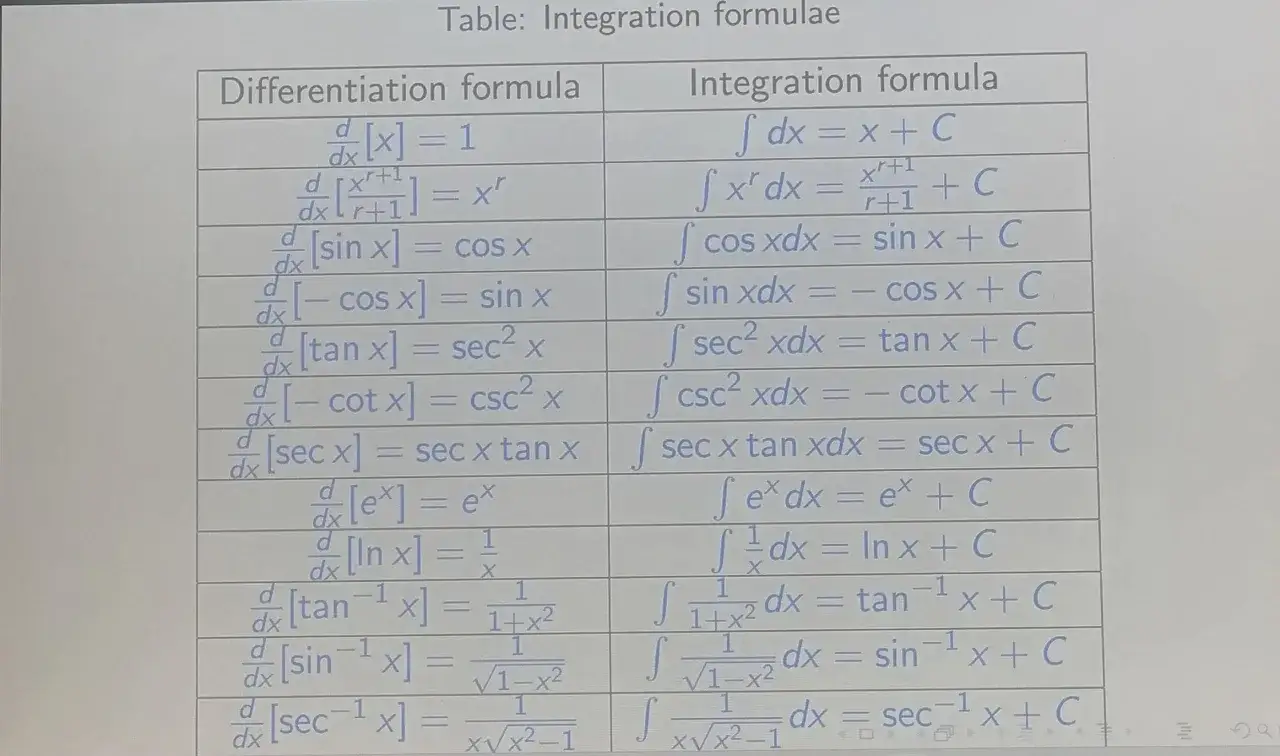 Table: Integration formulae
Differentiation formula | Integration formula
d/dx [x] = 1 | ∫ dx = x + C
d/dx [x^{r+1}/r+1] = x^r | ∫ x^r dx = x^{r+1}/r+1 + C
d/dx [sin x] = cos x | ∫ cos xdx = sin x + C
d/dx [− cos x] = sin x | ∫ sin xdx = − cos x + C
d/dx [tan x] = sec² x | ∫ sec² xdx = tan x + C
d/dx [− cot x] = csc² x | ∫ csc² xdx = − cot x + C
d/dx [sec x] = sec x tan x | ∫ sec x tan xdx = sec x + C
d/dx [e^x] = e^x | ∫ e^x dx = e^x + C
d/dx [ln x] = 1/x | ∫ 1/x dx = ln x + C
d/dx [tan⁻¹ x] = 1/1+x² | ∫ 1/1+x² dx = tan⁻¹ x + C
d/dx [sin⁻¹ x] = 1/√1−x² | ∫ 1/√1−x² dx = sin⁻¹ x + C
d/dx [sec⁻¹ x] = 1/x√x²−1 | ∫ 1/x√x²−1 dx = sec⁻¹ x + C